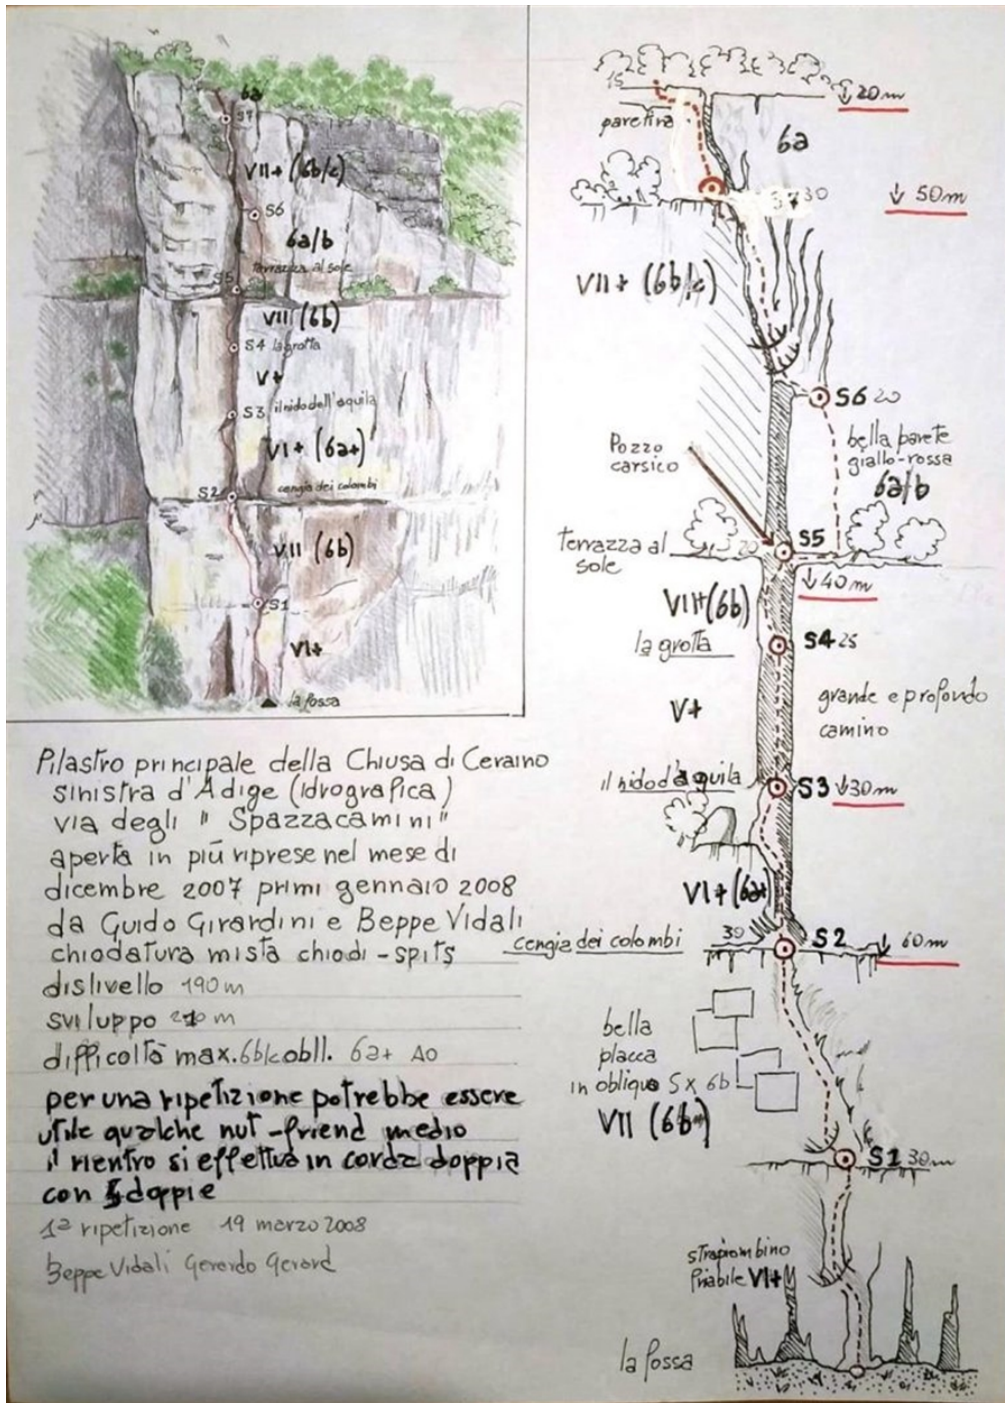 6a
S7
VII+ (6b/c)
S6
6a/b
terrazza al sole
S5
VII (6b)
S4 la grotta
V+
S3 il nido dell'aquila
VI+ (6a+)
cengia dei colombi
S2
VII (6b)
S1
VI+
la fossa
Pilastro principale della Chiusa di Ceraino
sinistra d'Adige (Idrografica)
via degli " Spazzacamini "
aperta in più riprese nel mese di
dicembre 2007 primi gennaio 2008
da Guido Girardini e Beppe Vidali
chiodatura mista chiodi - spits
dislivello 190 m
sviluppo 210 m
difficoltà max. 6b/c obll. 6a+ A0
per una ripetizione potrebbe essere
utile qualche nut - friend medio
il rientro si effettua in corda doppia
con 5 doppie
1ª ripetizione 19 marzo 2008
Beppe Vidali Gerardo Gerard
15
↓ 20 m
paretina
6a
S7 30
↓ 50 m
VII+ (6b/c)
S6 20
bella parete
giallo-rossa
6a/b
Pozzo
carsico
terrazza al
sole
20
S5
↓ 40 m
VII+ (6b)
la grotta
S4 25
V+
grande e profondo
camino
il nido d'aquila
S3 ↓ 30 m
VI+ (6a+)
cengia dei colombi
30
S2
↓ 60 m
bella
placca
in obliquo Sx 6b
VII (6b)
S1 30 m
strapiombino
friabile VI+
la fossa